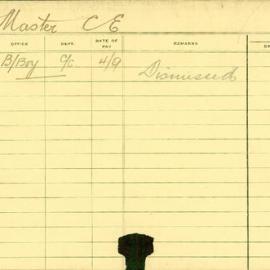 Master C E
OFFICE DEPT. DATE OF PAY REMARKS
B/Boy C/C 4/9 Dismissed